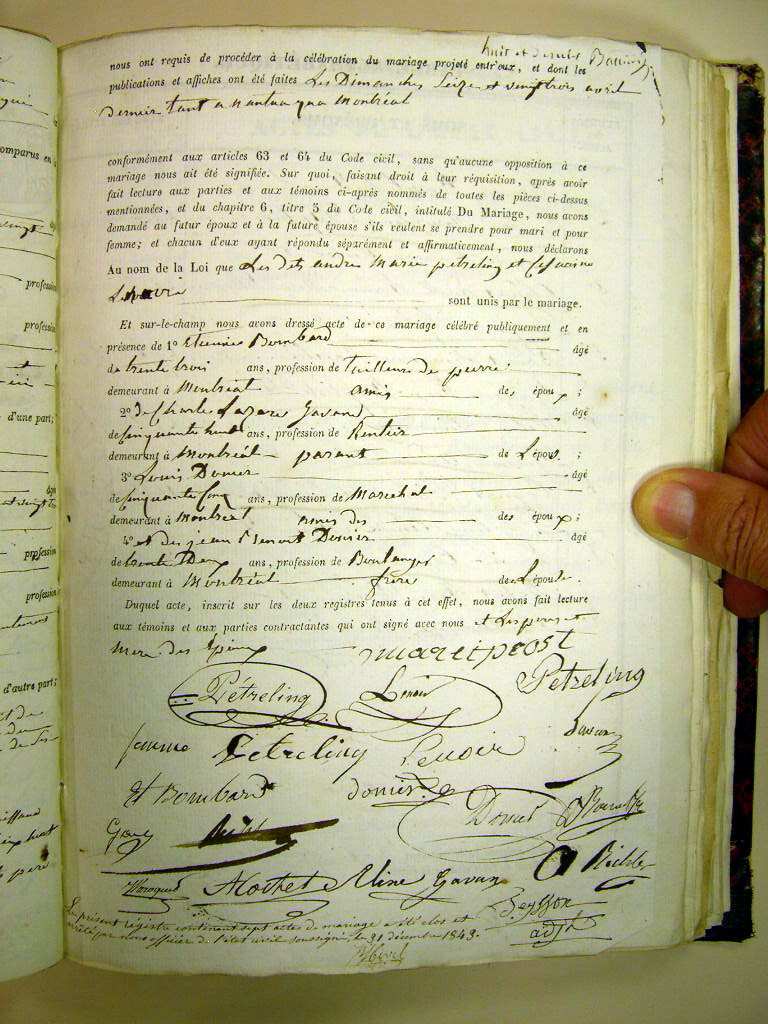 huit et dernier
nous ont requis de procéder à la célébration du mariage projeté entr'eux, et dont les
publications et affiches ont été faites Les Dimanches Seize et vingt trois avril
dernier tant a nantua qua Montréal
conformément aux articles 63 et 64 du Code civil, sans qu'aucune opposition à ce
mariage nous ait été signifiée. Sur quoi, faisant droit à leur réquisition, après avoir
fait lecture aux parties et aux témoins ci-après nommés de toutes les pièces ci-dessus
mentionnées, et du chapitre 6, titre 5 du Code civil, intitulé Du Mariage, nous avons
demandé au futur époux et à la future épouse s'ils veulent se prendre pour mari et pour
femme; et chacun d'eux ayant répondu séparément et affirmativement, nous déclarons
Au nom de la Loi que Les dits andré Marie petreling et
sont unis par le mariage.
Et sur-le-champ nous avons dressé acte de ce mariage célébré publiquement et en
présence de 1° Etienne Bombard âgé
de trente trois ans, profession de tailleur de pierre
demeurant à Montréal amis des époux;
2° De Charle Lazare Gavand âgé
de Cinquante huit ans, profession de Rentier
demeurant à Montréal parant de L'époux;
3° Louis Donier âgé
de Cinquante Cinq ans, profession de Marechal
demeurant à Montréal amis des des époux;
4° et de jean Donier âgé
de trente Deux ans, profession de Boulanger
demeurant à Montréal frère de L'épouse.
Duquel acte, inscrit sur les deux registres tenus à cet effet, nous avons fait lecture
aux témoins et aux parties contractantes qui ont signé avec nous et Les pere et
Mere des Epoux
mareiprost
Pétreling Lenoir Petreling
femme Petreling Lenoir
Et Bombard donier Donier
Gavand
Mochet Aline Gavan
Seysson
adjt
Le présent registre contenant sept actes de mariage a été clos et
arrêté par nous officier de l'état civil soussigné, le 31 décembre 1843.
comparus en
profession
profession
d'une part;
âgé
profession
profession
d'autre part;